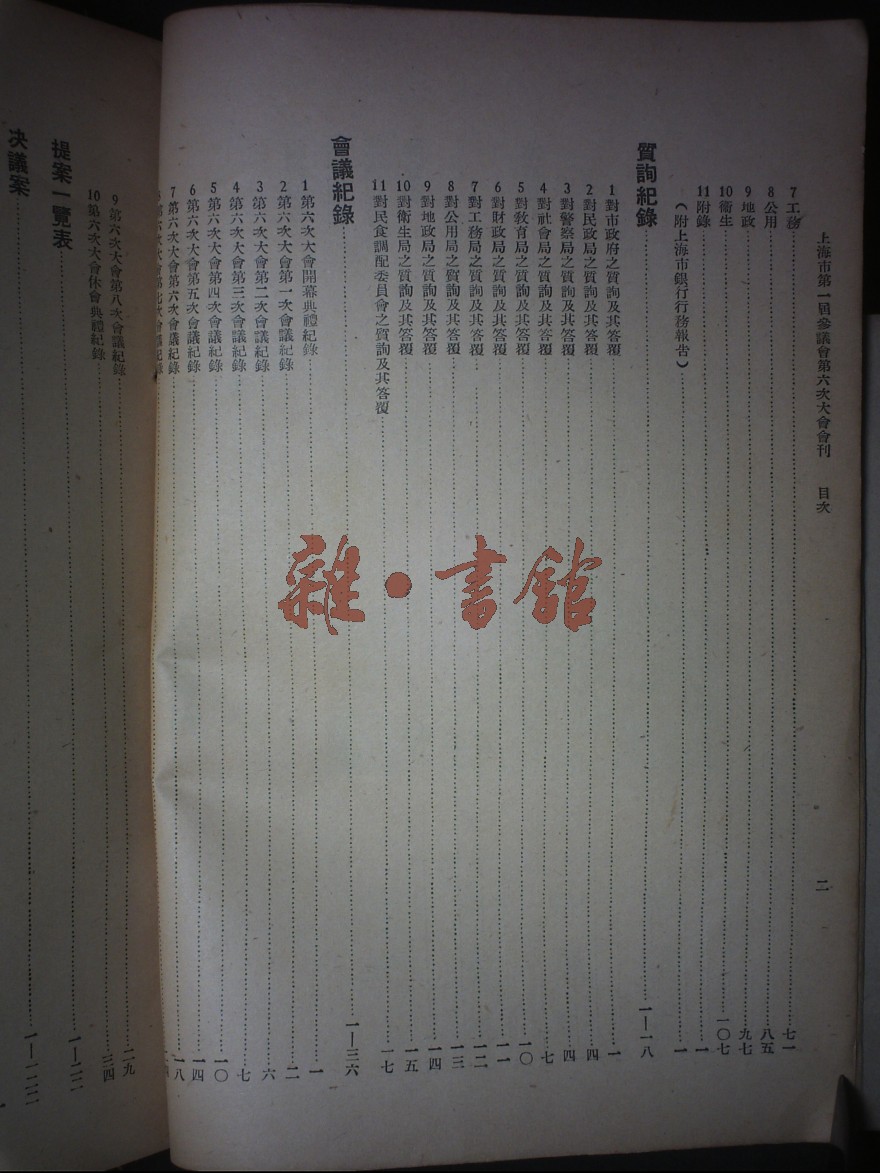 上海市第一屆參議會第六次大會會刊　目次　二
7 工務……七一
8 公用……八五
9 地政……九七
10 衞生……一〇七
11 附錄……一
（附上海市銀行行務報告）……一
質詢紀錄……一—一八
1 對市政府之質詢及其答覆……一
2 對民政局之質詢及其答覆……四
3 對警察局之質詢及其答覆……四
4 對社會局之質詢及其答覆……七
5 對敎育局之質詢及其答覆……一〇
6 對財政局之質詢及其答覆……一一
7 對工務局之質詢及其答覆……一二
8 對公用局之質詢及其答覆……一三
9 對地政局之質詢及其答覆……一四
10 對衛生局之質詢及其答覆……一五
11 對民食調配委員會之質詢及其答覆……一七
會議紀錄……一—三六
1 第六次大會開幕典禮紀錄……一
2 第六次大會第一次會議紀錄……二
3 第六次大會第二次會議紀錄……六
4 第六次大會第三次會議紀錄……七
5 第六次大會第四次會議紀錄……一〇
6 第六次大會第五次會議紀錄……一四
7 第六次大會第六次會議紀錄……一八
8 第六次大會第七次會議紀錄
9 第六次大會第八次會議紀錄……二九
10 第六次大會休會典禮紀錄……三四
提案一覽表……一—二二
決議案……一—一二二
雜·書館